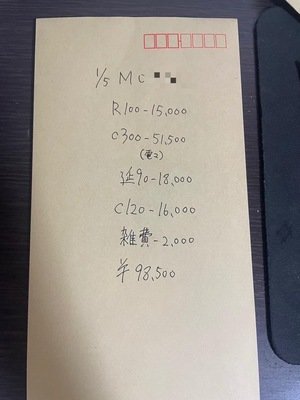 1/5 MC
R100-15,000
C300-51,500
(電2)
延90-18,000
C120-16,000
雑費-2,000
¥98,500